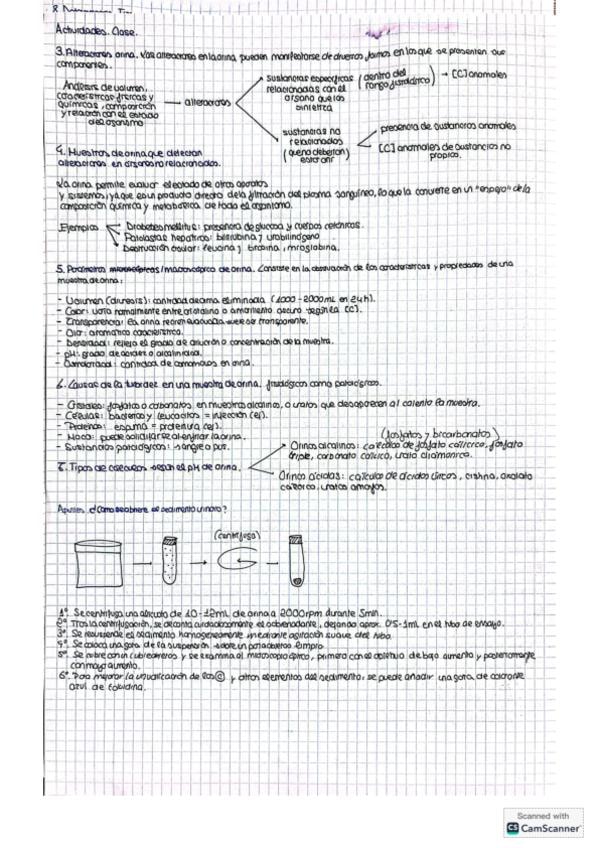 Actividades. Clase.
3. Alteraciones orina. Las alteraciones en la orina pueden manifestarse de diversas formas en los que se presentan sus
componentes.
Análisis de volumen,
características físicas y
químicas, composición
y relación con el estado
del organismo
alteraciones
sustancias específicas
relacionadas con el
órgano que los
sintetiza
(dentro del
rango fisiológico)
→ [C] anomales
sustancias no
relacionadas
(que no deberían
estar ahí)
presencia de sustancias anomales
[C] anomales de sustancias no
propias.
4. Muestras de orina que detectan
alteraciones en órganos no relacionados.
La orina permite evaluar el estado de otros aparatos
y sistemas, ya que es un producto directo de la filtración del plasma sanguíneo, lo que la convierte en un "espejo" de la
composición química y metabólica de todo el organismo.
Ejemplos
Diabetes mellitus: presencia de glucosa y cuerpos cetónicos.
Patologías hepáticas: bilirrubina y urobilinógeno
Destrucción: leucina y tirosina, mioglobina.
5. Parámetros macroscópicos de orina. Consiste en la observación de las características y propiedades de una
muestra de orina:
- Volumen (diuresis): cantidad de orina eliminada (1000-2000mL en 24h).
- Color: varía normalmente entre amarillo o amarillento oscuro según la [C].
- Transparencia: la orina recién evacuada suele ser transparente.
- Olor: aromático característico.
- Densidad: refleja el grado de dilución o concentración de la muestra.
- pH: grado de acidez o alcalinidad.
- Osmolaridad: cantidad de osmoles en orina.
6. Causas de la turbidez en una muestra de orina, fisiológicas como patológicas.
- Cristales: fosfatos o carbonatos en muestras alcalinas, o uratos que desaparecen al calentar la muestra.
- Células: bacterias y leucocitos = infección (ej).
- Proteínas: espuma = proteinuria (ej).
- Moco: puede solidificarse al enfriar la orina.
- Sustancias patológicas: sangre o pus.
7. Tipos de cálculos según el pH de orina.
(fosfatos y bicarbonatos)
Orinas alcalinas: cálculos de fosfato cálcico, fosfato
triple, carbonato cálcico, urato diamónico.
Orinas ácidas: cálculos de ácidos úricos, cistina, oxalato
cálcico, uratos amorfos.
Apuntes. ¿Cómo se obtiene el sedimento urinario?
(centrífuga)
1º. Se centrifuga una alícuota de 10-12mL de orina a 2000rpm durante 5min.
2º Tras la centrifugación, se decanta cuidadosamente el sobrenadante, dejando aprox. 0'5-1mL en el tubo de ensayo.
3º. Se resuspende el sedimento homogéneamente mediante agitación suave del tubo.
4º. Se coloca una gota de la suspensión sobre un portaobjetos limpio.
5º. Se cubre con un cubreobjetos y se examina al microscopio óptico, primero con el objetivo de bajo aumento y posteriormente
con mayor aumento.
6º. Para mejorar la visualización de las C y otros elementos del sedimento, se puede añadir una gota de colorante
azul de toluidina.
Scanned with
CS CamScanner